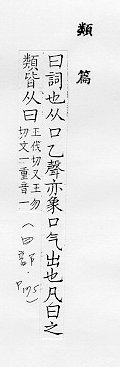 類篇
曰詞也从口乙聲亦象口气出也凡曰之
類皆从曰
王伐切又王勿
切文一重音一
(曰部.